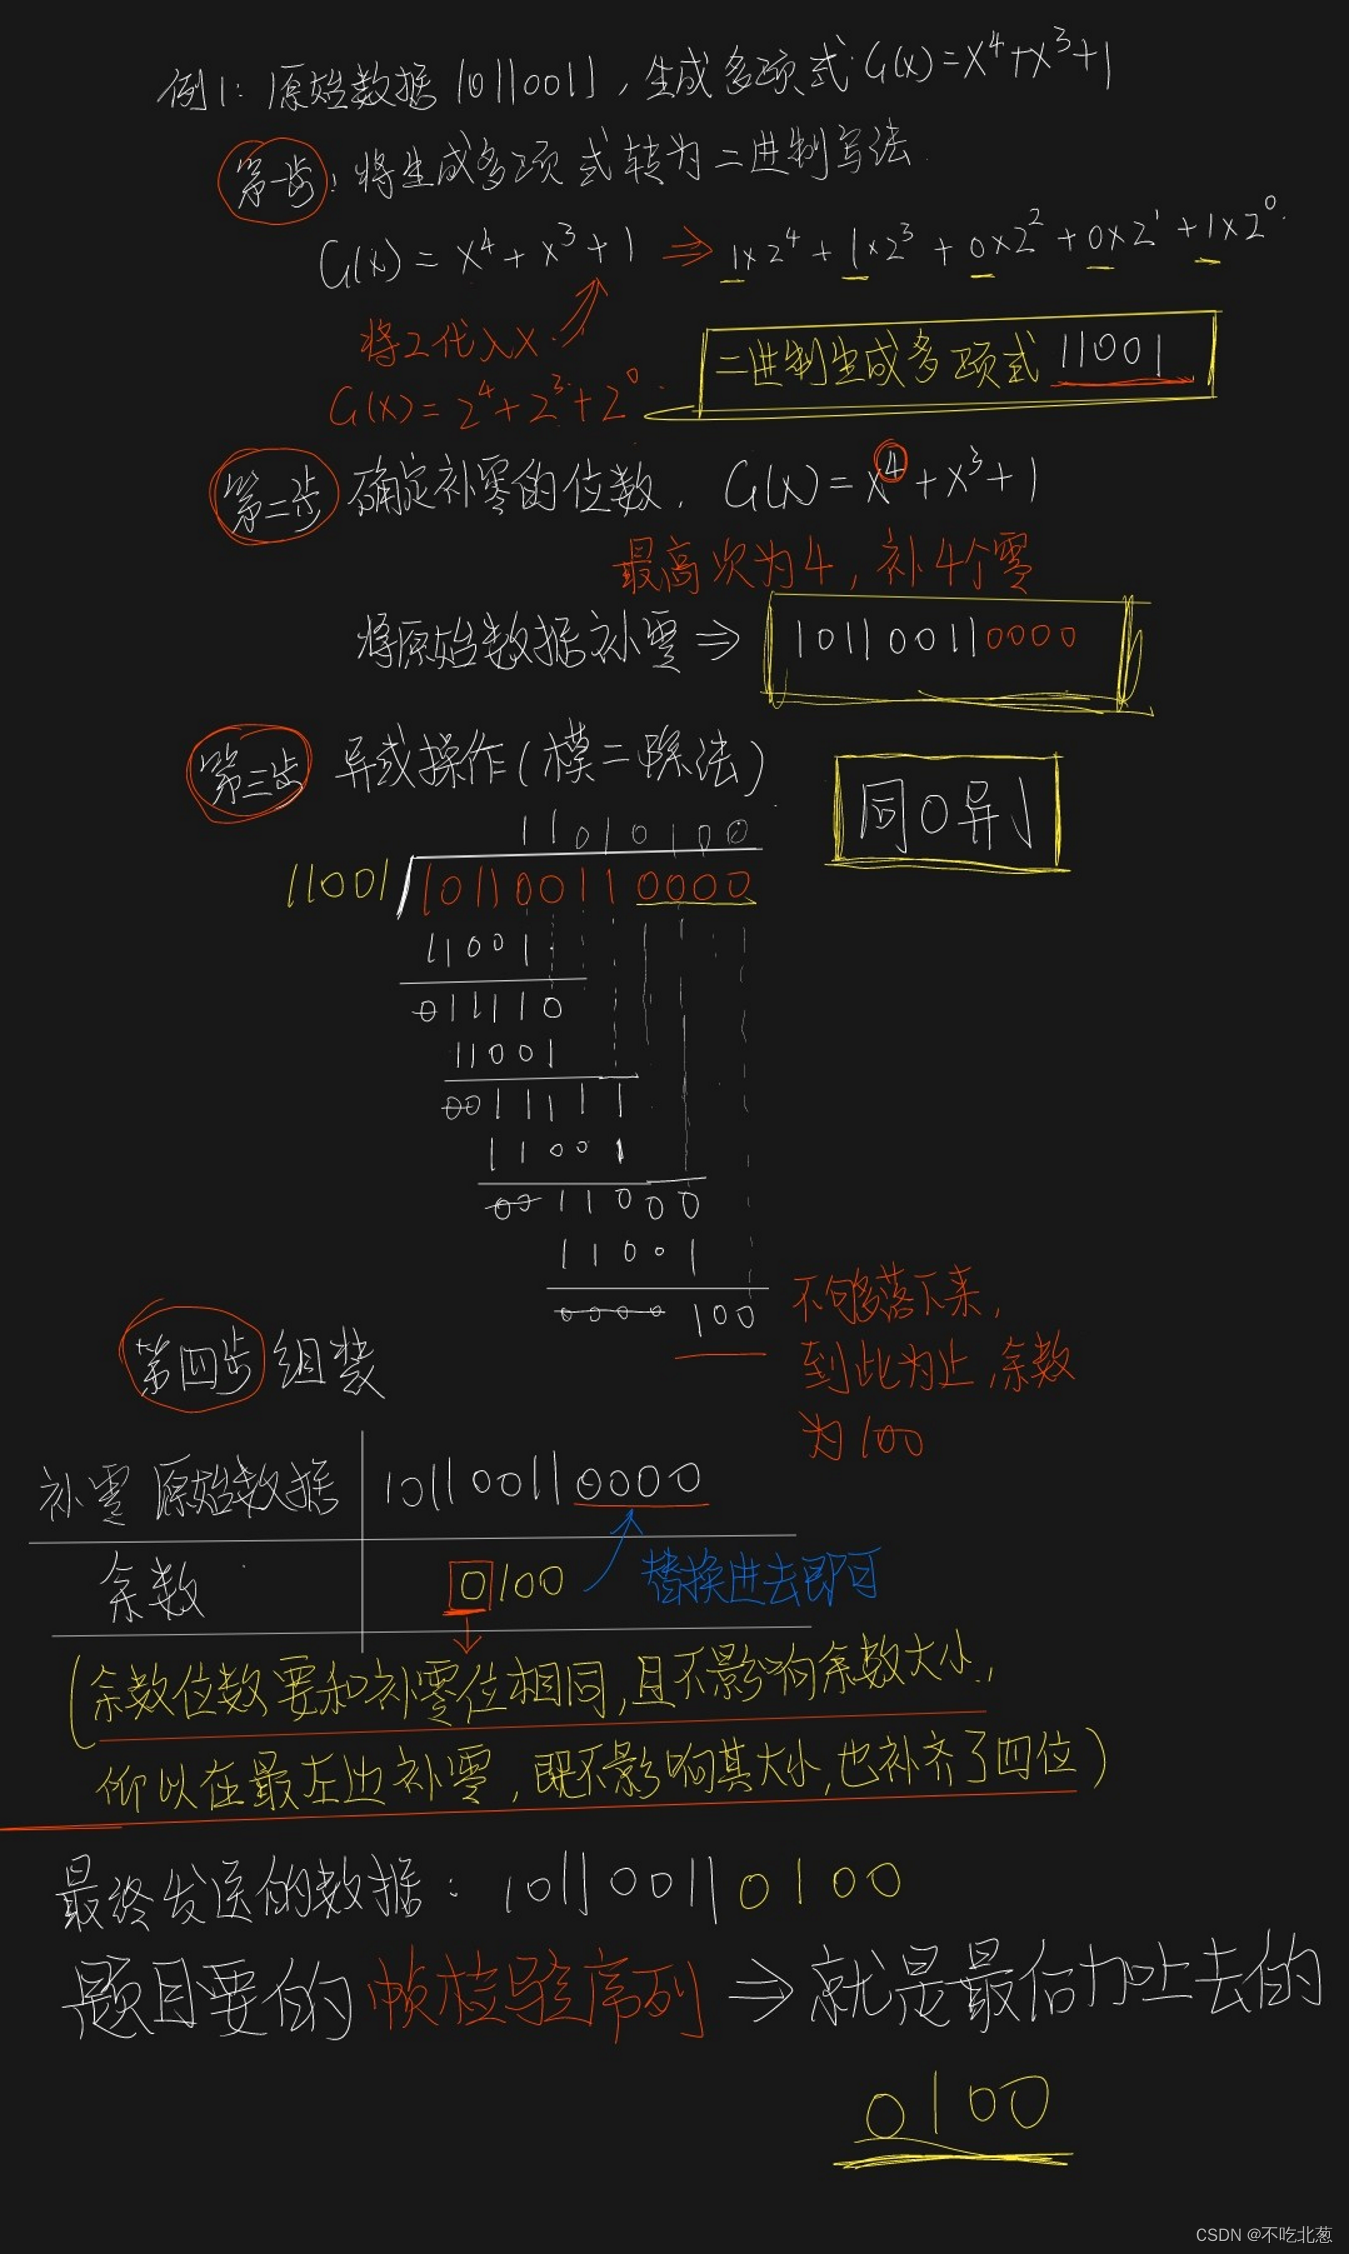 例1: 原始数据 10110011, 生成多项式 G(x)=x⁴+x³+1
第一步: 将生成多项式转为二进制写法
G(x) = x⁴ + x³ + 1 ⇒ 1×2⁴ + 1×2³ + 0×2² + 0×2¹ + 1×2⁰
将2代入x
G(x) = 2⁴+2³+2⁰
二进制生成多项式 11001
第二步 确定补零的位数, G(x) = x⁴+x³+1
最高次为4, 补4个零
将原始数据补零 ⇒ 101100110000
第三步 异或操作(模二除法)
同0异1
11010100
11001 101100110000
11001
011110
11001
0011111
11001
0011000
11001
0000100
不够落下来,
到此为止,余数
为100
第四步 组装
补零原始数据 101100110000
余数 0100 替换进去即可
(余数位数要和补零位相同,且不影响余数大小,
所以在最左边补零,既不影响其大小,也补齐了四位)
最终发送的数据: 101100110100
题目要的帧检验序列 ⇒ 就是最后加上去的
0100
CSDN @不吃北葱